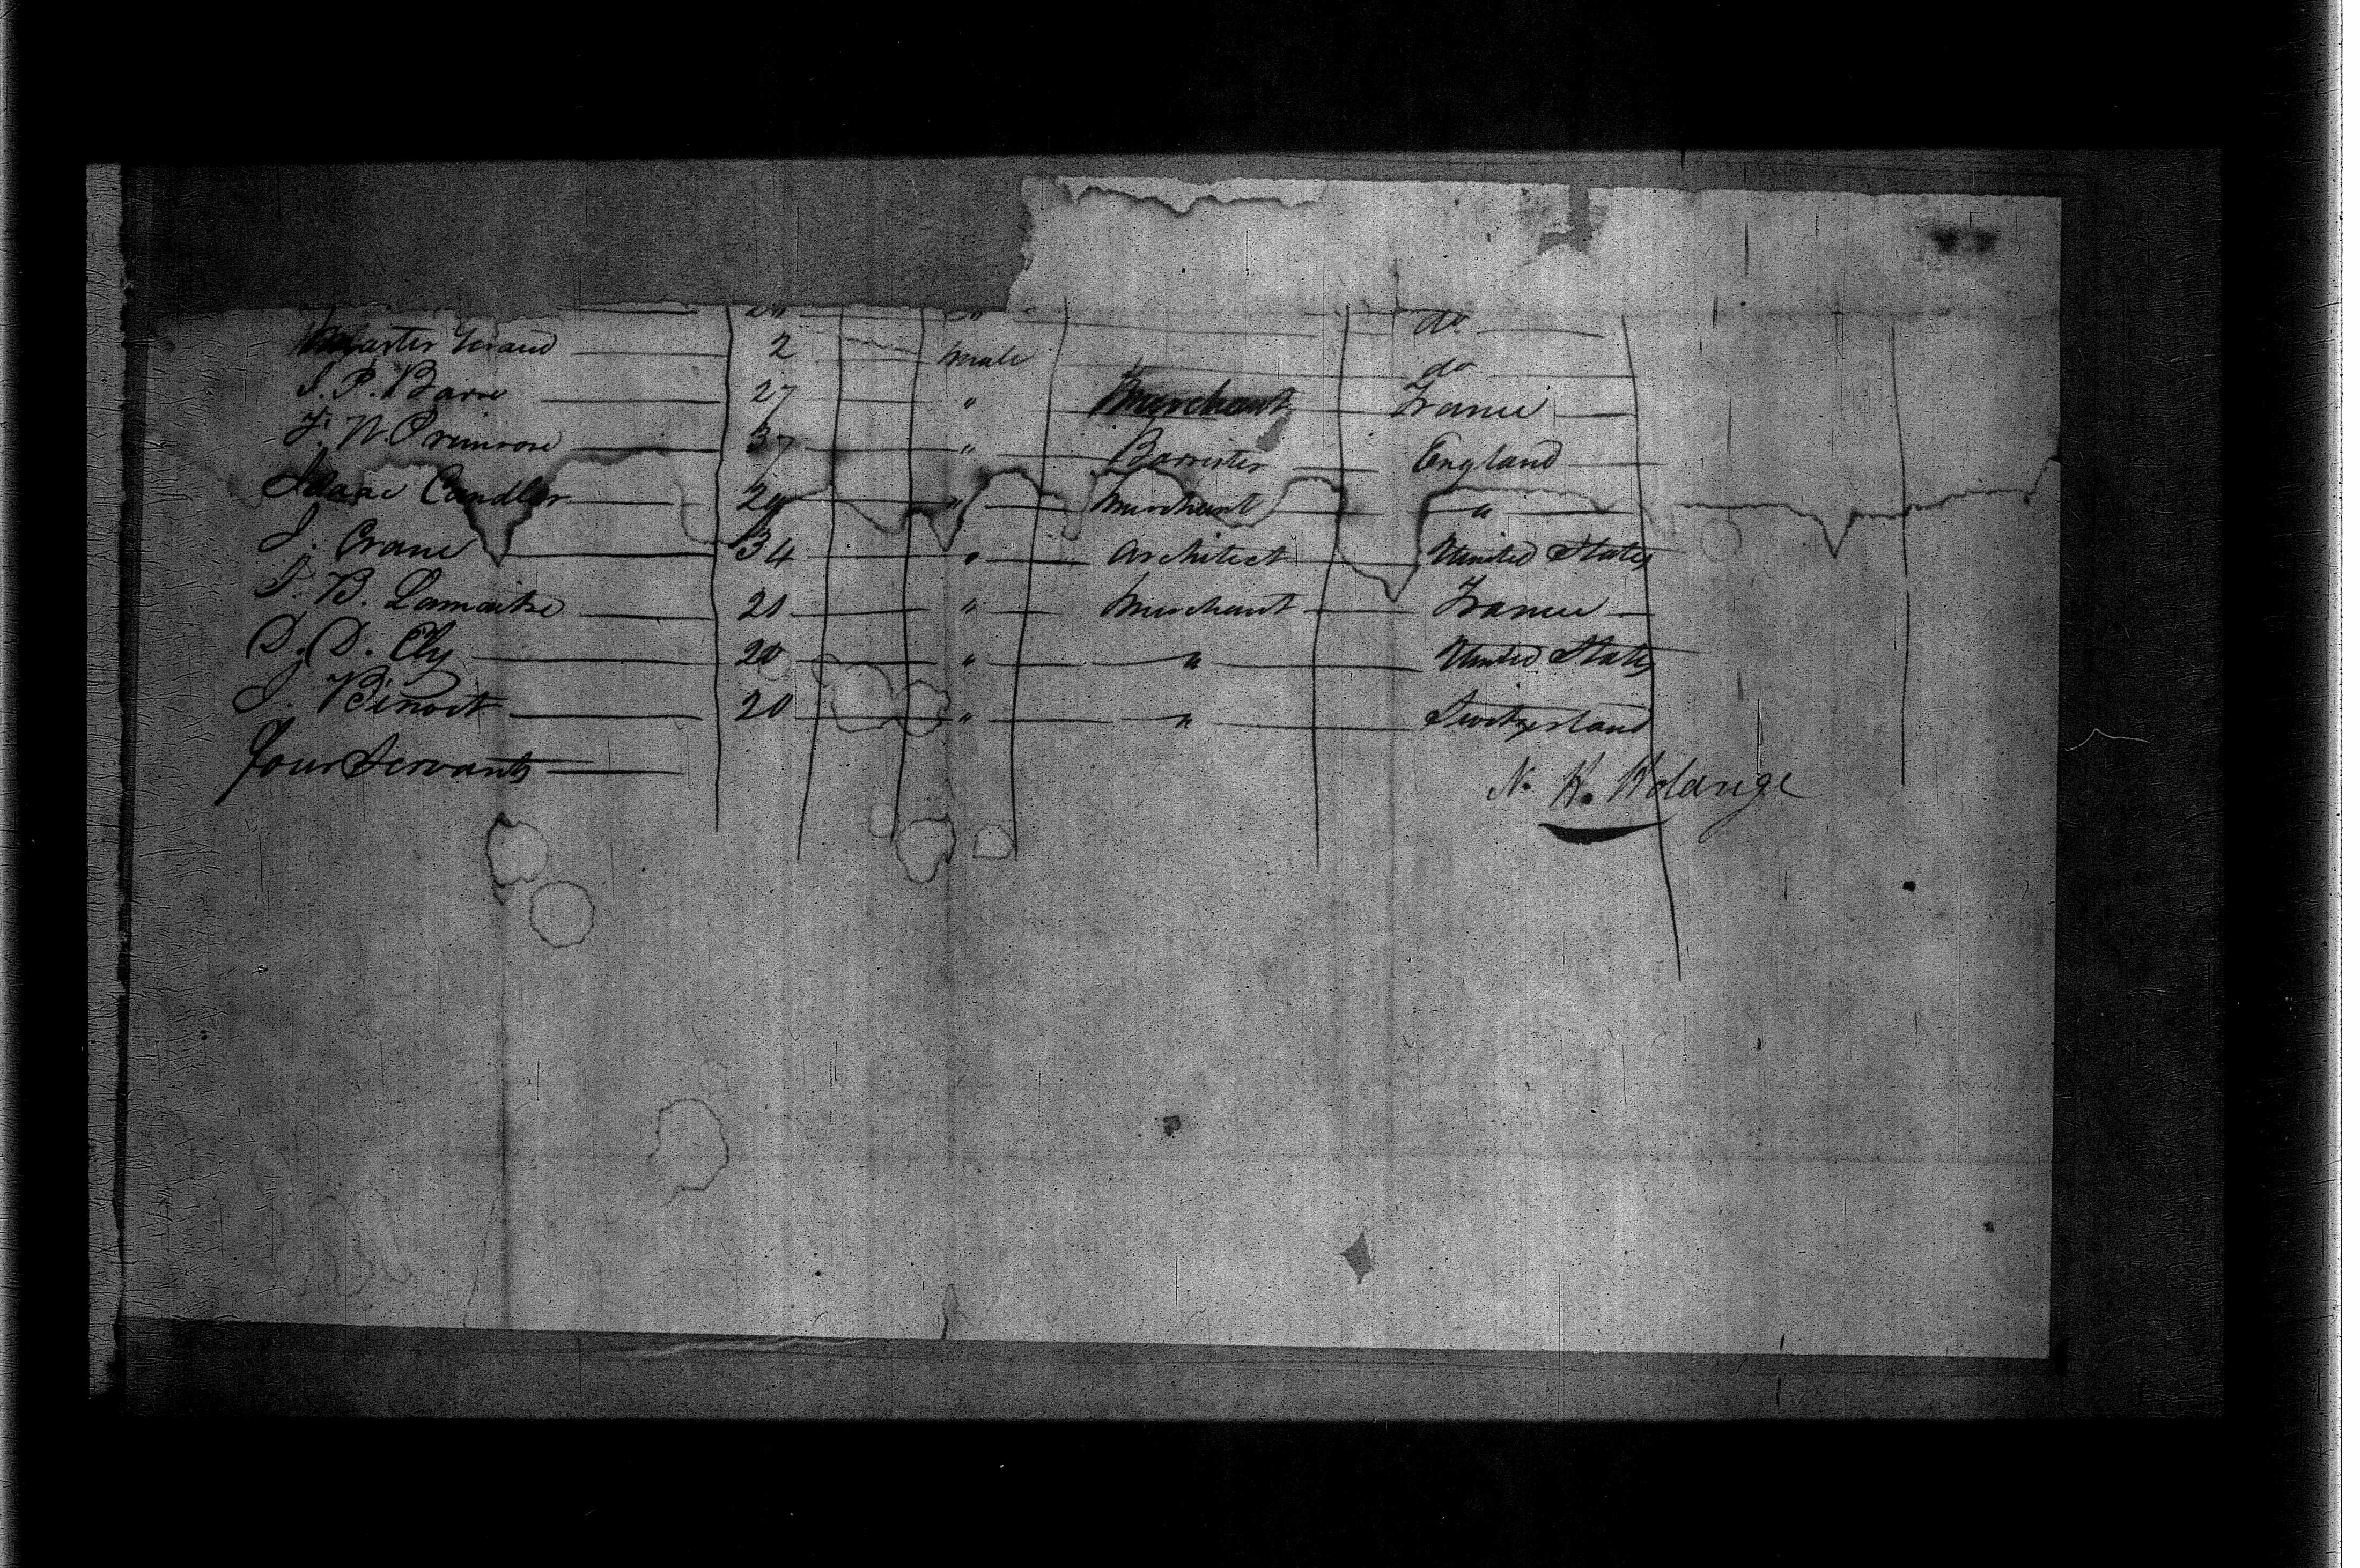 " do
Master Giraud 2 male do
J. P. Barre 27 " Merchant France
F. W. Primrose 37 " Barrister England
Isaac Candler 29 " Merchant "
J. Crane 34 " Architect United States
J. B. Lamaitre 21 " Merchant France
D. D. Ely 20 " " United States
J. Binoit 20 " " Switzerland
Four Servants
N. H. Holdrege